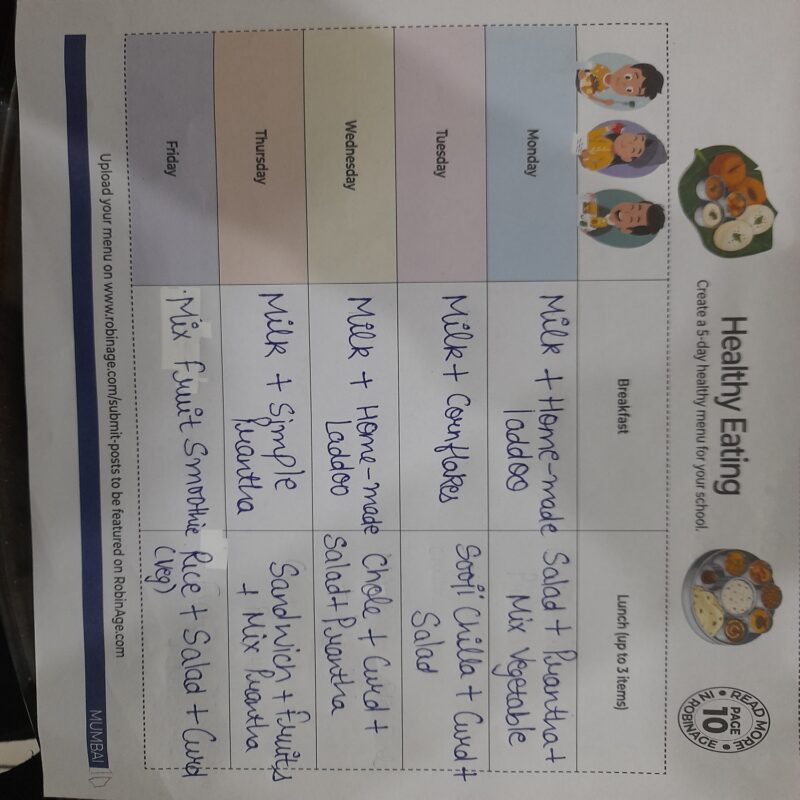 Healthy Eating
Create a 5-day healthy menu for your school.
READ MORE
PAGE
10
IN ROBINAGE
Breakfast
Lunch (up to 3 items)
Monday
Milk + Home-made
laddoo
Salad + Prantha +
Mix Vegetable
Tuesday
Milk + Cornflakes
Sooji Chilla + Curd +
Salad
Wednesday
Milk + Home-made
Laddoo
Chole + Curd +
Salad + Prantha
Thursday
Milk + Simple
Prantha
Sandwich + Fruits
+ Mix Prantha
Friday
Mix Fruit Smoothie
Rice + Salad + Curd
(Veg)
Upload your menu on www.robinage.com/submit-posts to be featured on RobinAge.com
MUMBAI